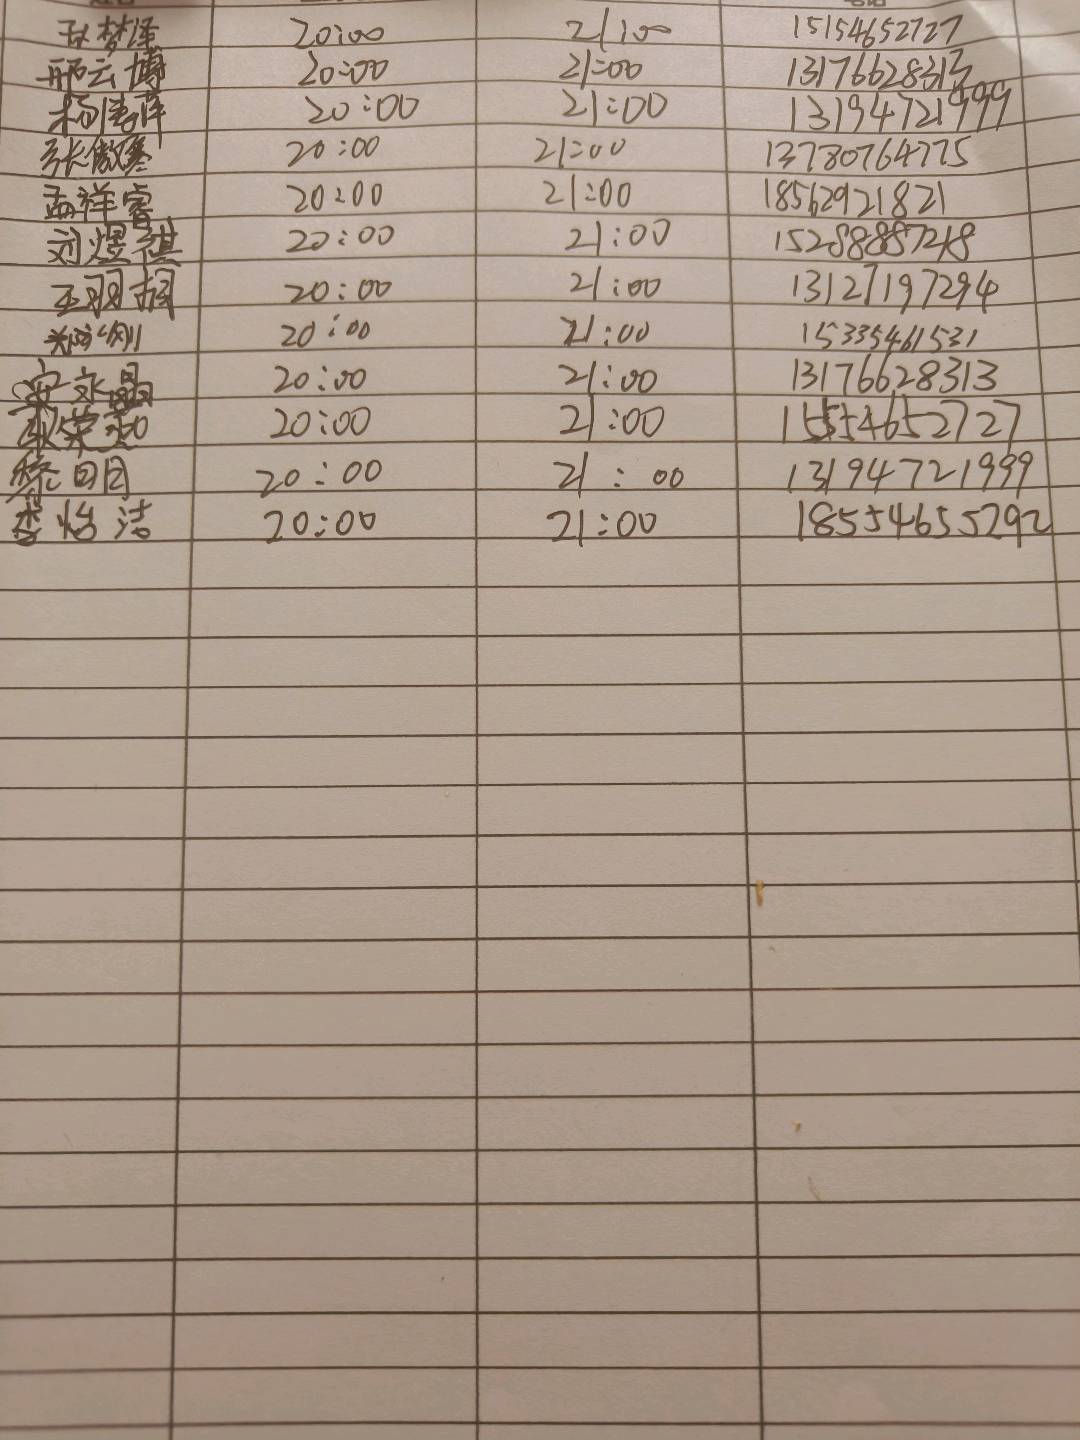 梦泽 20:00 21:00 15154652727
邢云博 20:00 21:00 13176628313
杨 20:00 21:00 13194721999
张傲寒 20:00 21:00 13780764775
孟祥睿 20:00 21:00 18562921821
刘煜祺 20:00 21:00 15288887218
王羽桐 20:00 21:00 13127197294
20:00 21:00 15335461531
安永晶 20:00 21:00 13176628313
荣 20:00 21:00 15554652727
20:00 21:00 13194721999
李怡洁 20:00 21:00 18554655292